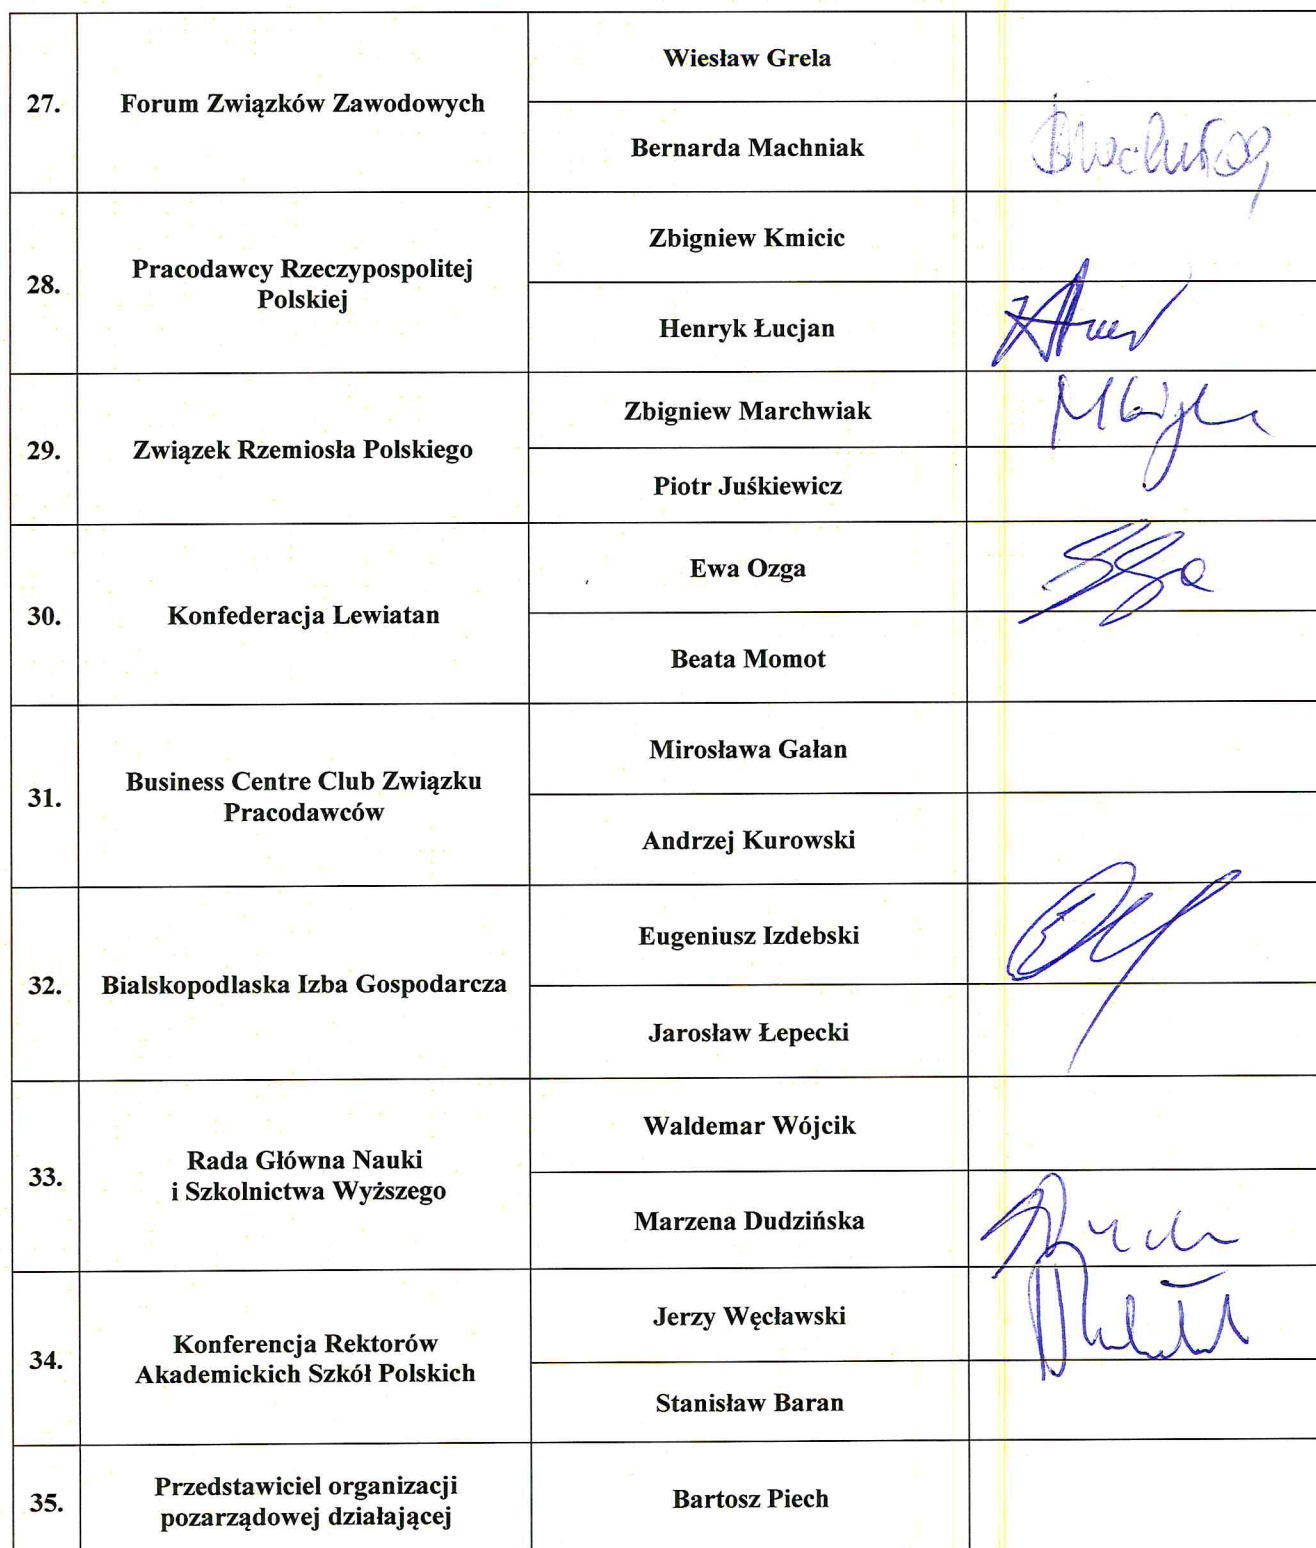 27.
Forum Związków Zawodowych
Wiesław Grela
Bernarda Machniak
28.
Pracodawcy Rzeczypospolitej
Polskiej
Zbigniew Kmicic
Henryk Łucjan
29.
Związek Rzemiosła Polskiego
Zbigniew Marchwiak
Piotr Juśkiewicz
30.
Konfederacja Lewiatan
Ewa Ozga
Beata Momot
31.
Business Centre Club Związku
Pracodawców
Mirosława Gałan
Andrzej Kurowski
32.
Bialskopodlaska Izba Gospodarcza
Eugeniusz Izdebski
Jarosław Łepecki
33.
Rada Główna Nauki
i Szkolnictwa Wyższego
Waldemar Wójcik
Marzena Dudzińska
34.
Konferencja Rektorów
Akademickich Szkół Polskich
Jerzy Węcławski
Stanisław Baran
35.
Przedstawiciel organizacji
pozarządowej działającej
Bartosz Piech